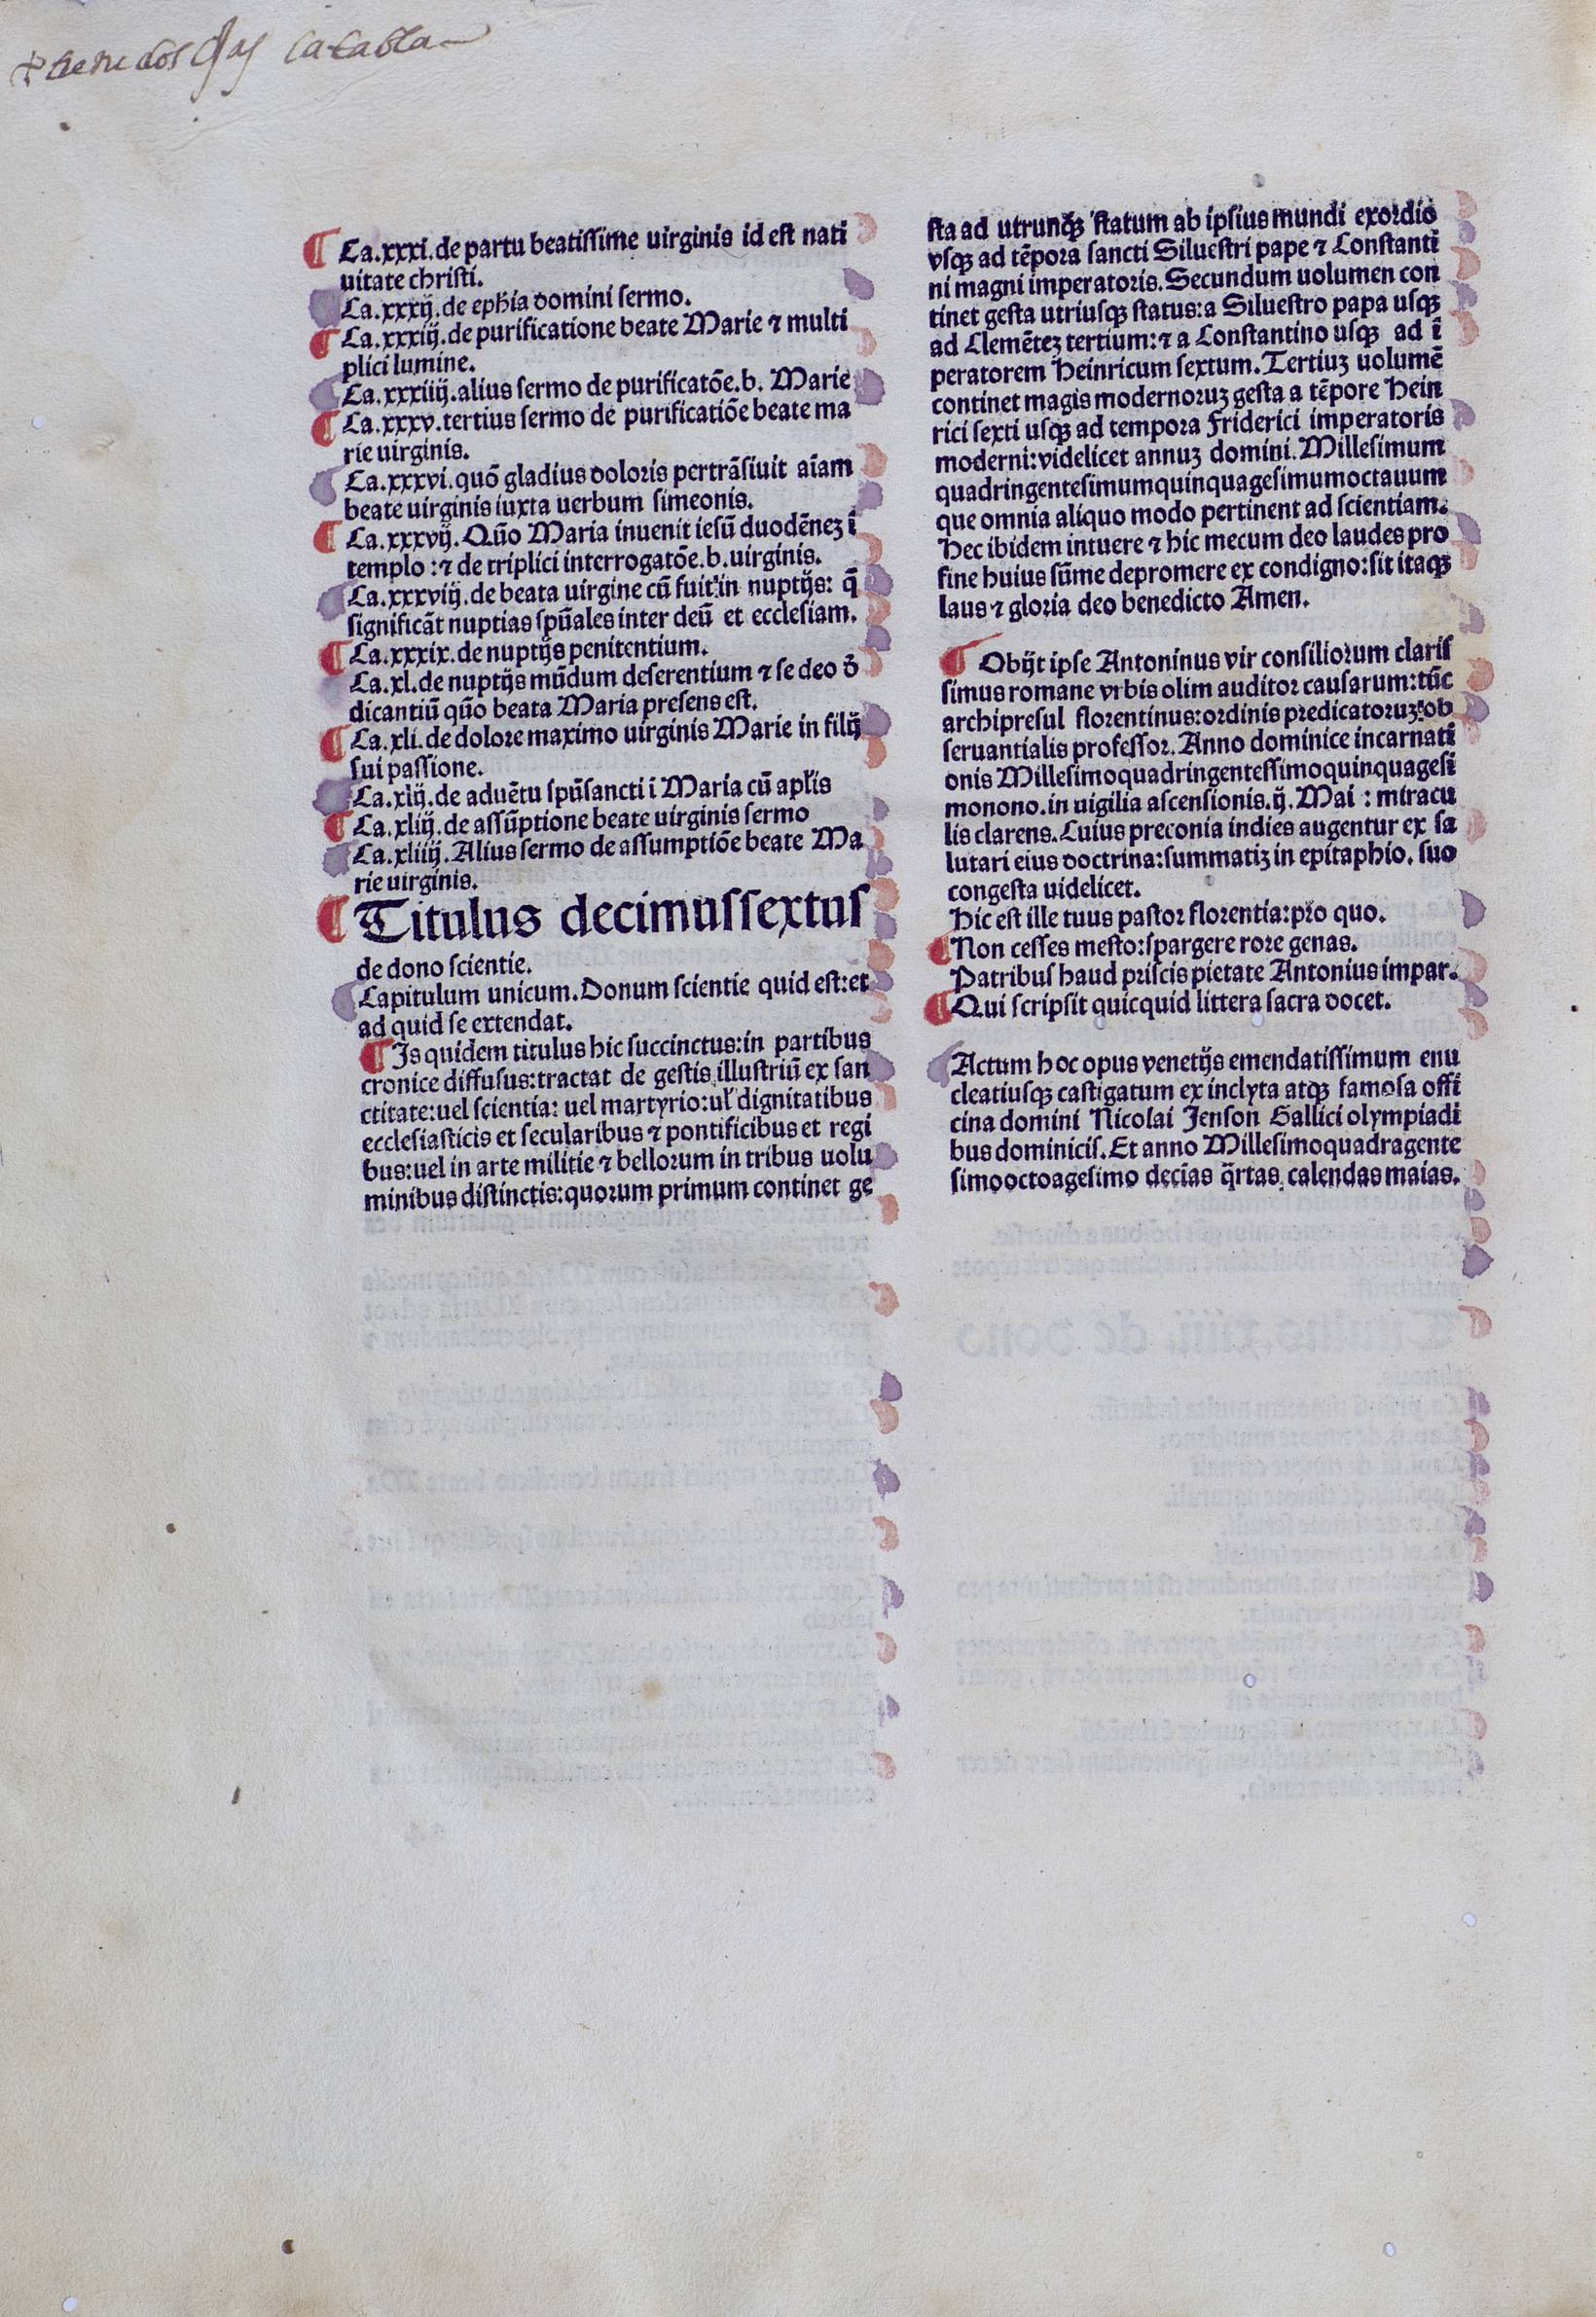 tiene dos
¶ Ca.xxxi.de partu beatissime uirginis id est nati
uitate christi.
Ca.xxxij.de ephia domini sermo.
¶ Ca.xxxiij.de purificatione beate Marie ⁊ multi
plici lumine.
Ca.xxxiiij.alius sermo de purificatõe.b. Marie
¶ Ca.xxxv.tertius sermo de purificatiõe beate ma
rie uirginis.
Ca.xxxvi.quõ gladius doloris pertrãsiuit aĩam
beate uirginis iuxta uerbum simeonis.
¶ Ca.xxxvij.Qũo Maria inuenit iesũ duodẽnez ĩ
templo:⁊ de triplici interrogatõe.b.uirginis.
Ca.xxxviij.de beata uirgine cũ fuit in nuptijs: q̃
significãt nuptias spũales inter deũ et ecclesiam.
¶ Ca.xxxix.de nuptijs penitentium.
Ca.xl.de nuptijs mũdum deserentium ⁊ se deo d̃
dicantiũ qũo beata Maria presens est.
¶ Ca.xli.de dolore maximo uirginis Marie in filij
sui passione.
Ca.xlij.de aduẽtu spũsancti ĩ Maria cũ apłis
¶ Ca.xliij.de assũptione beate uirginis sermo
Ca.xliiij.Alius sermo de assumptiõe beate Ma
rie uirginis.
¶ Titulus decimussextus
de dono scientie.
Capitulum unicum.Donum scientie quid est:et
ad quid se extendat.
¶ Is quidem titulus hic succinctus:in partibus
cronice diffusus:tractat de gestis illustriũ ex san
ctitate:uel scientia: uel martyrio:uł dignitatibus
ecclesiasticis et secularibus ⁊ pontificibus et regi
bus:uel in arte militie ⁊ bellorum in tribus uolu
minibus distinctis:quorum primum continet ge
sta ad utrunq̃ʒ statum ab ipsius mundi exordio
vsqʒ ad tẽpora sancti Siluestri pape ⁊ Constanti
ni magni imperatoris.Secundum uolumen con
tinet gesta utriusqʒ status:a Siluestro papa usqʒ
ad Clemẽtez tertium:⁊ a Constantino usqʒ ad ĩ
peratorem Heinricum sextum.Tertiuz uolumẽ
continet magis modernoruz gesta a tẽpore Hein
rici sexti usqʒ ad tempora Friderici imperatoris
moderni:videlicet annuz domini.Millesimum
quadringentesimumquinquagesimumoctauum
que omnia aliquo modo pertinent ad scientiam.
Hec ibidem intuere ⁊ hic mecum deo laudes pro
fine huius sũme depromere ex condigno:sit itaqʒ
laus ⁊ gloria deo benedicto Amen.
¶ Obijt ipse Antoninus vir consiliorum claris
simus romane vrbis olim auditor causarum:tũc
archipresul florentinus:ordinis predicatoruz:ob
seruantialis professor.Anno dominice incarnati
onis Millesimoquadringentessimoquinquagesi
monono.in uigilia ascensionis.ij.Mai : miracu
lis clarens.Cuius preconia indies augentur ex sa
lutari eius doctrina:summatiz in epitaphio. suo
congesta uidelicet.
Hic est ille tuus pastor florentia:pro quo.
¶ Non cesses mesto:spargere rore genas.
Patribus haud priscis pietate Antonius impar.
¶ Qui scripsit quicquid littera sacra docet.
Actum hoc opus venetijs emendatissimum enu
cleatiusqʒ castigatum ex inclyta atqʒ famosa offi
cina domini Nicolai Jenson Gallici olympiadi
bus dominicis.Et anno Millesimoquadragente
simooctoagesimo decĩas q̃rtas calendas maias.